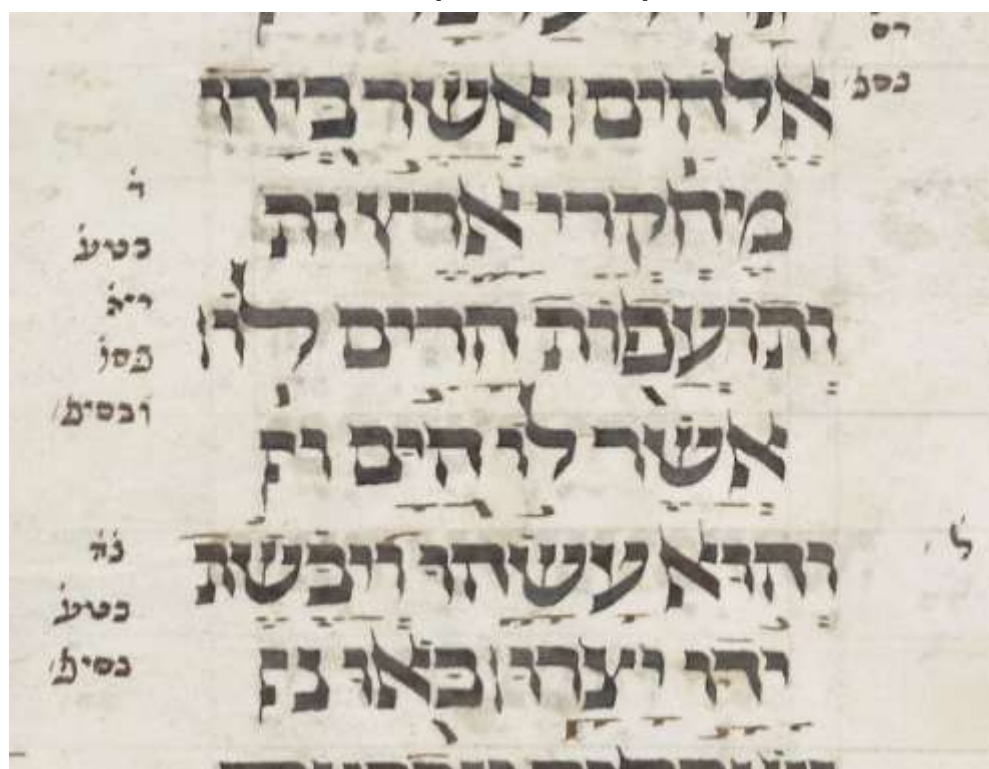 אלהים ׀ אשר בידו
מחקרי ארץ ות
ותועפות הרים לו ׀
אשר לו הים וי
והוא עשהו ויבשת
ידו יצרו ׀ באו נ
ד̇
בטע̇
יא̇
פסו̇
ובסיפ̇
נה̇
בטע̇
בסיפ̇
ל̇